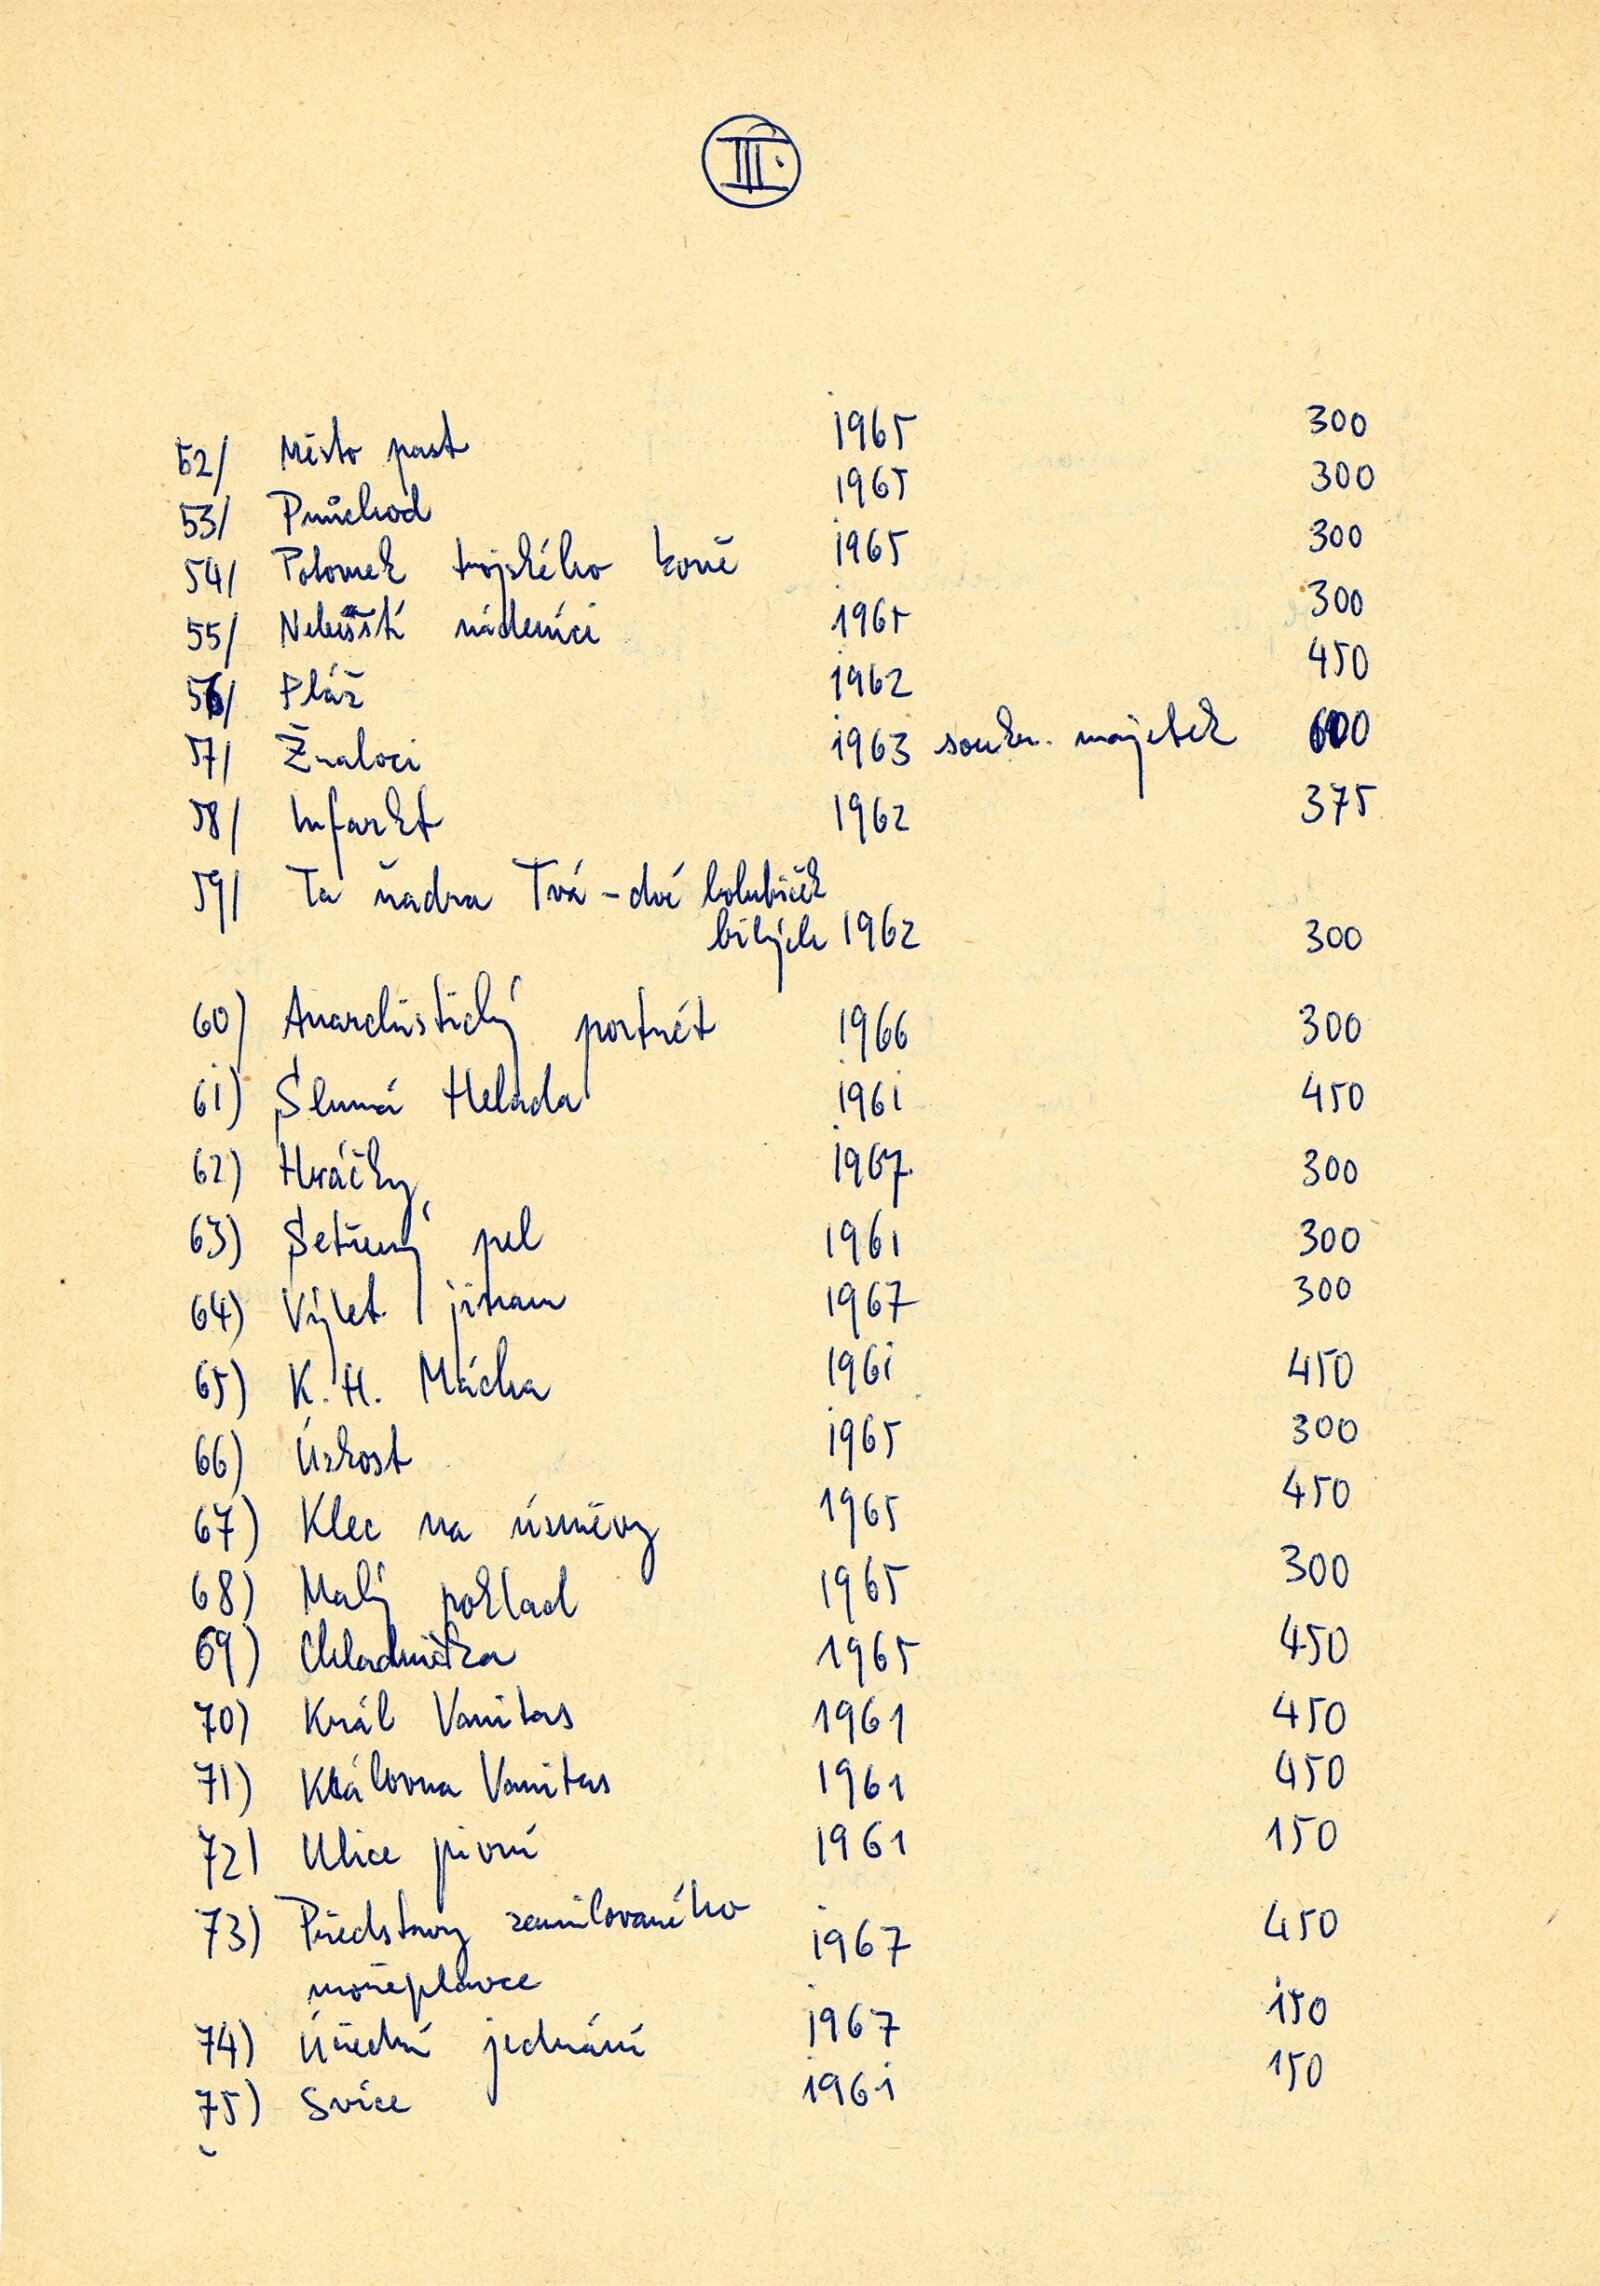 III.
52/ Město past 1965 300
53/ Průchod 1965 300
54/ Potomek trojského koně 1965 300
55/ Nebeští nádeníci 1965 300
56/ Pláž 1962 450
57/ Žraloci 1963 soukr. majetek 600
58/ Infarkt 1962 375
59/ Ta ňadra Tvá – dvé holubiček
bílých 1962 300
60) Anarchistický portrét 1966 300
61) Slunná Helada 1961 450
62) Hráčky 1967 300
63) Setřený pel 1961 300
64) Výlet jinam 1967 300
65) K. H. Mácha 1961 450
66) Úzkost 1965 300
67) Klec na úsměvy 1965 450
68) Malý poklad 1965 300
69) Chladnička 1965 450
70) Král Vanitas 1961 450
71) Královna Vanitas 1961 450
72) Ulice pivní 1961 150
73) Představy zamilovaného 1967 450
mořeplavce
74) Úřední jednání 1967 150
75) Svíce 1961 150